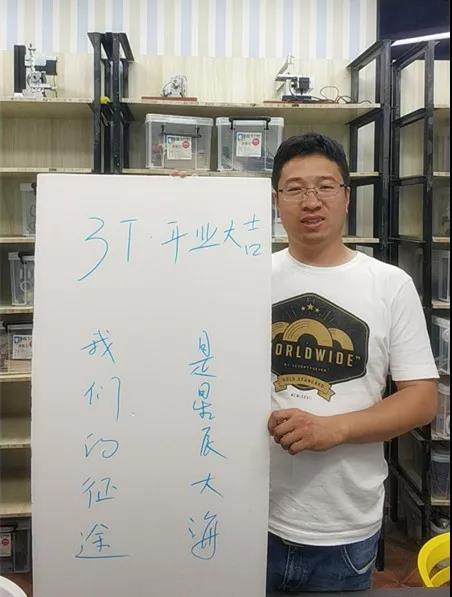 3T·开业大吉
我们的征途
是星辰大海
WORLDWIDE
GOLD STANDARD